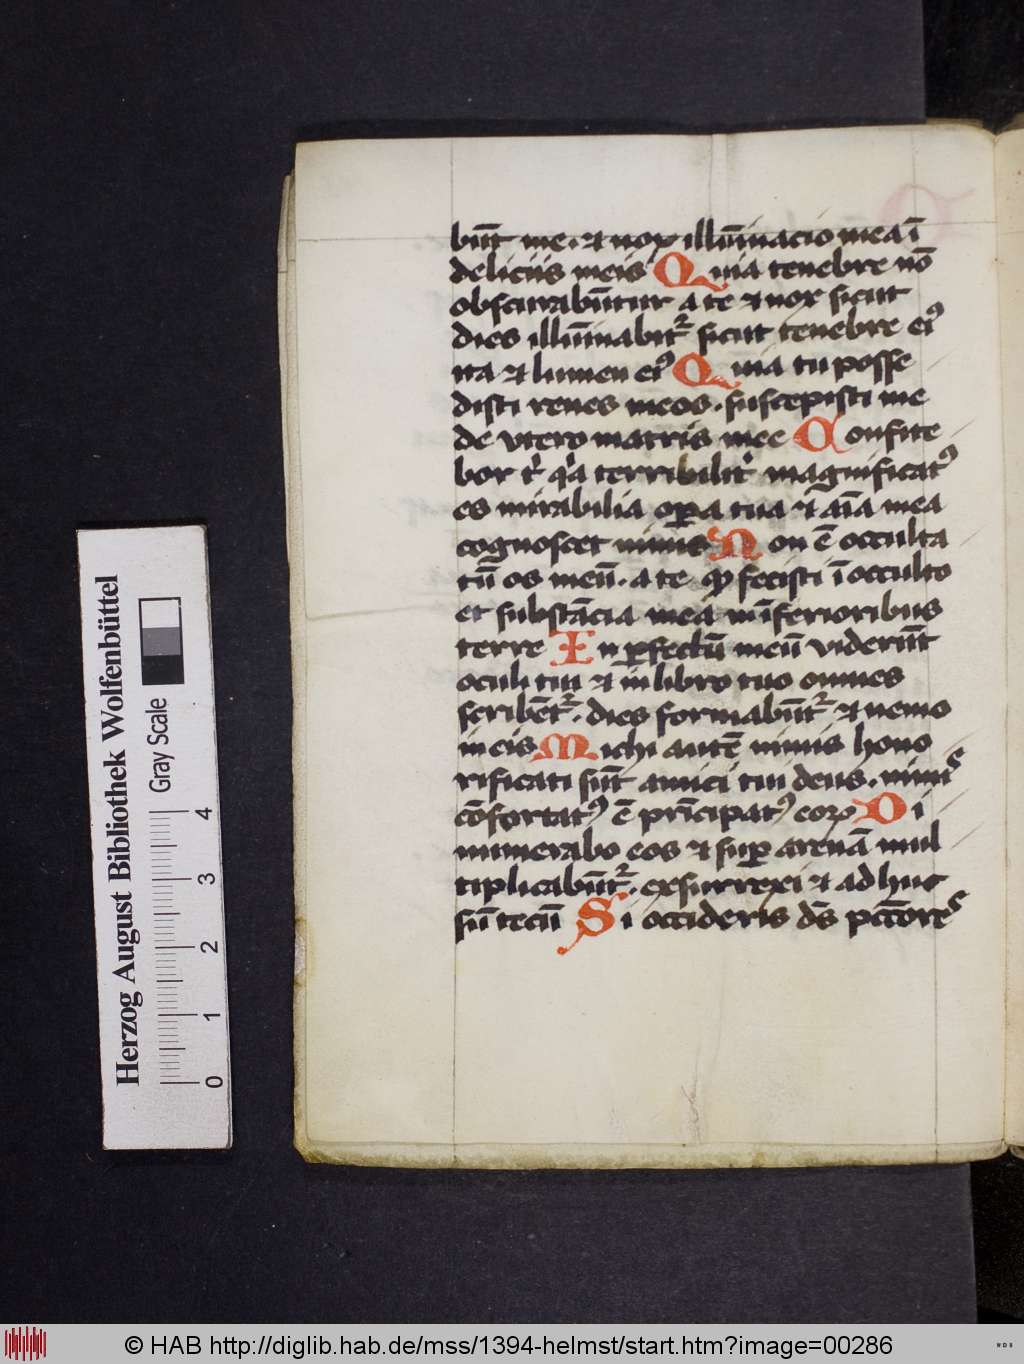 būt me. ⁊ nox illūinacio mea ī
deliciis meis Quia tenebre nō
obscurabūtur a te ⁊ nox sicut
dies illūinabit᷑ sicut tenebre eiꝰ
ita ⁊ lumen eiꝰ Quia tu posse
disti renes meos. suscepisti me
de vtero matris mee Confite
bor t' q'a terribilit' magnificatꝰ
es mirabilia oꝑa tua ⁊ aīa mea
cognoscet nimis Non ē occulta
tū os meū. a te qͦ fecisti ī occulto
et substācia mea in īferioribus
terre Inꝑfectū meū viderūt
oculi tui ⁊ in libro tuo omnes
scribēt᷑. dies formabūt᷑ ⁊ nemo
in eis Michi autē nimis hono
rificati sūt amici tui deus. nimis
cōfortatꝰ ē prīcipatꝰ eoꝝ Di
numerabo eos ⁊ suꝑ arenā mul
tiplicabūt᷑. exsurrexi ⁊ ad huc
sū tecū Si occideris dꝰ pctōres
Herzog August Bibliothek Wolfenbüttel
Gray Scale
0 1 2 3 4
© HAB http://diglib.hab.de/mss/1394-helmst/start.htm?image=00286